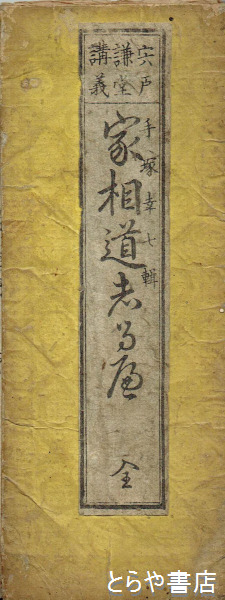 宍戸
謙堂
講義
手塚幸七輯
家相道志る遍
全
とらや書店